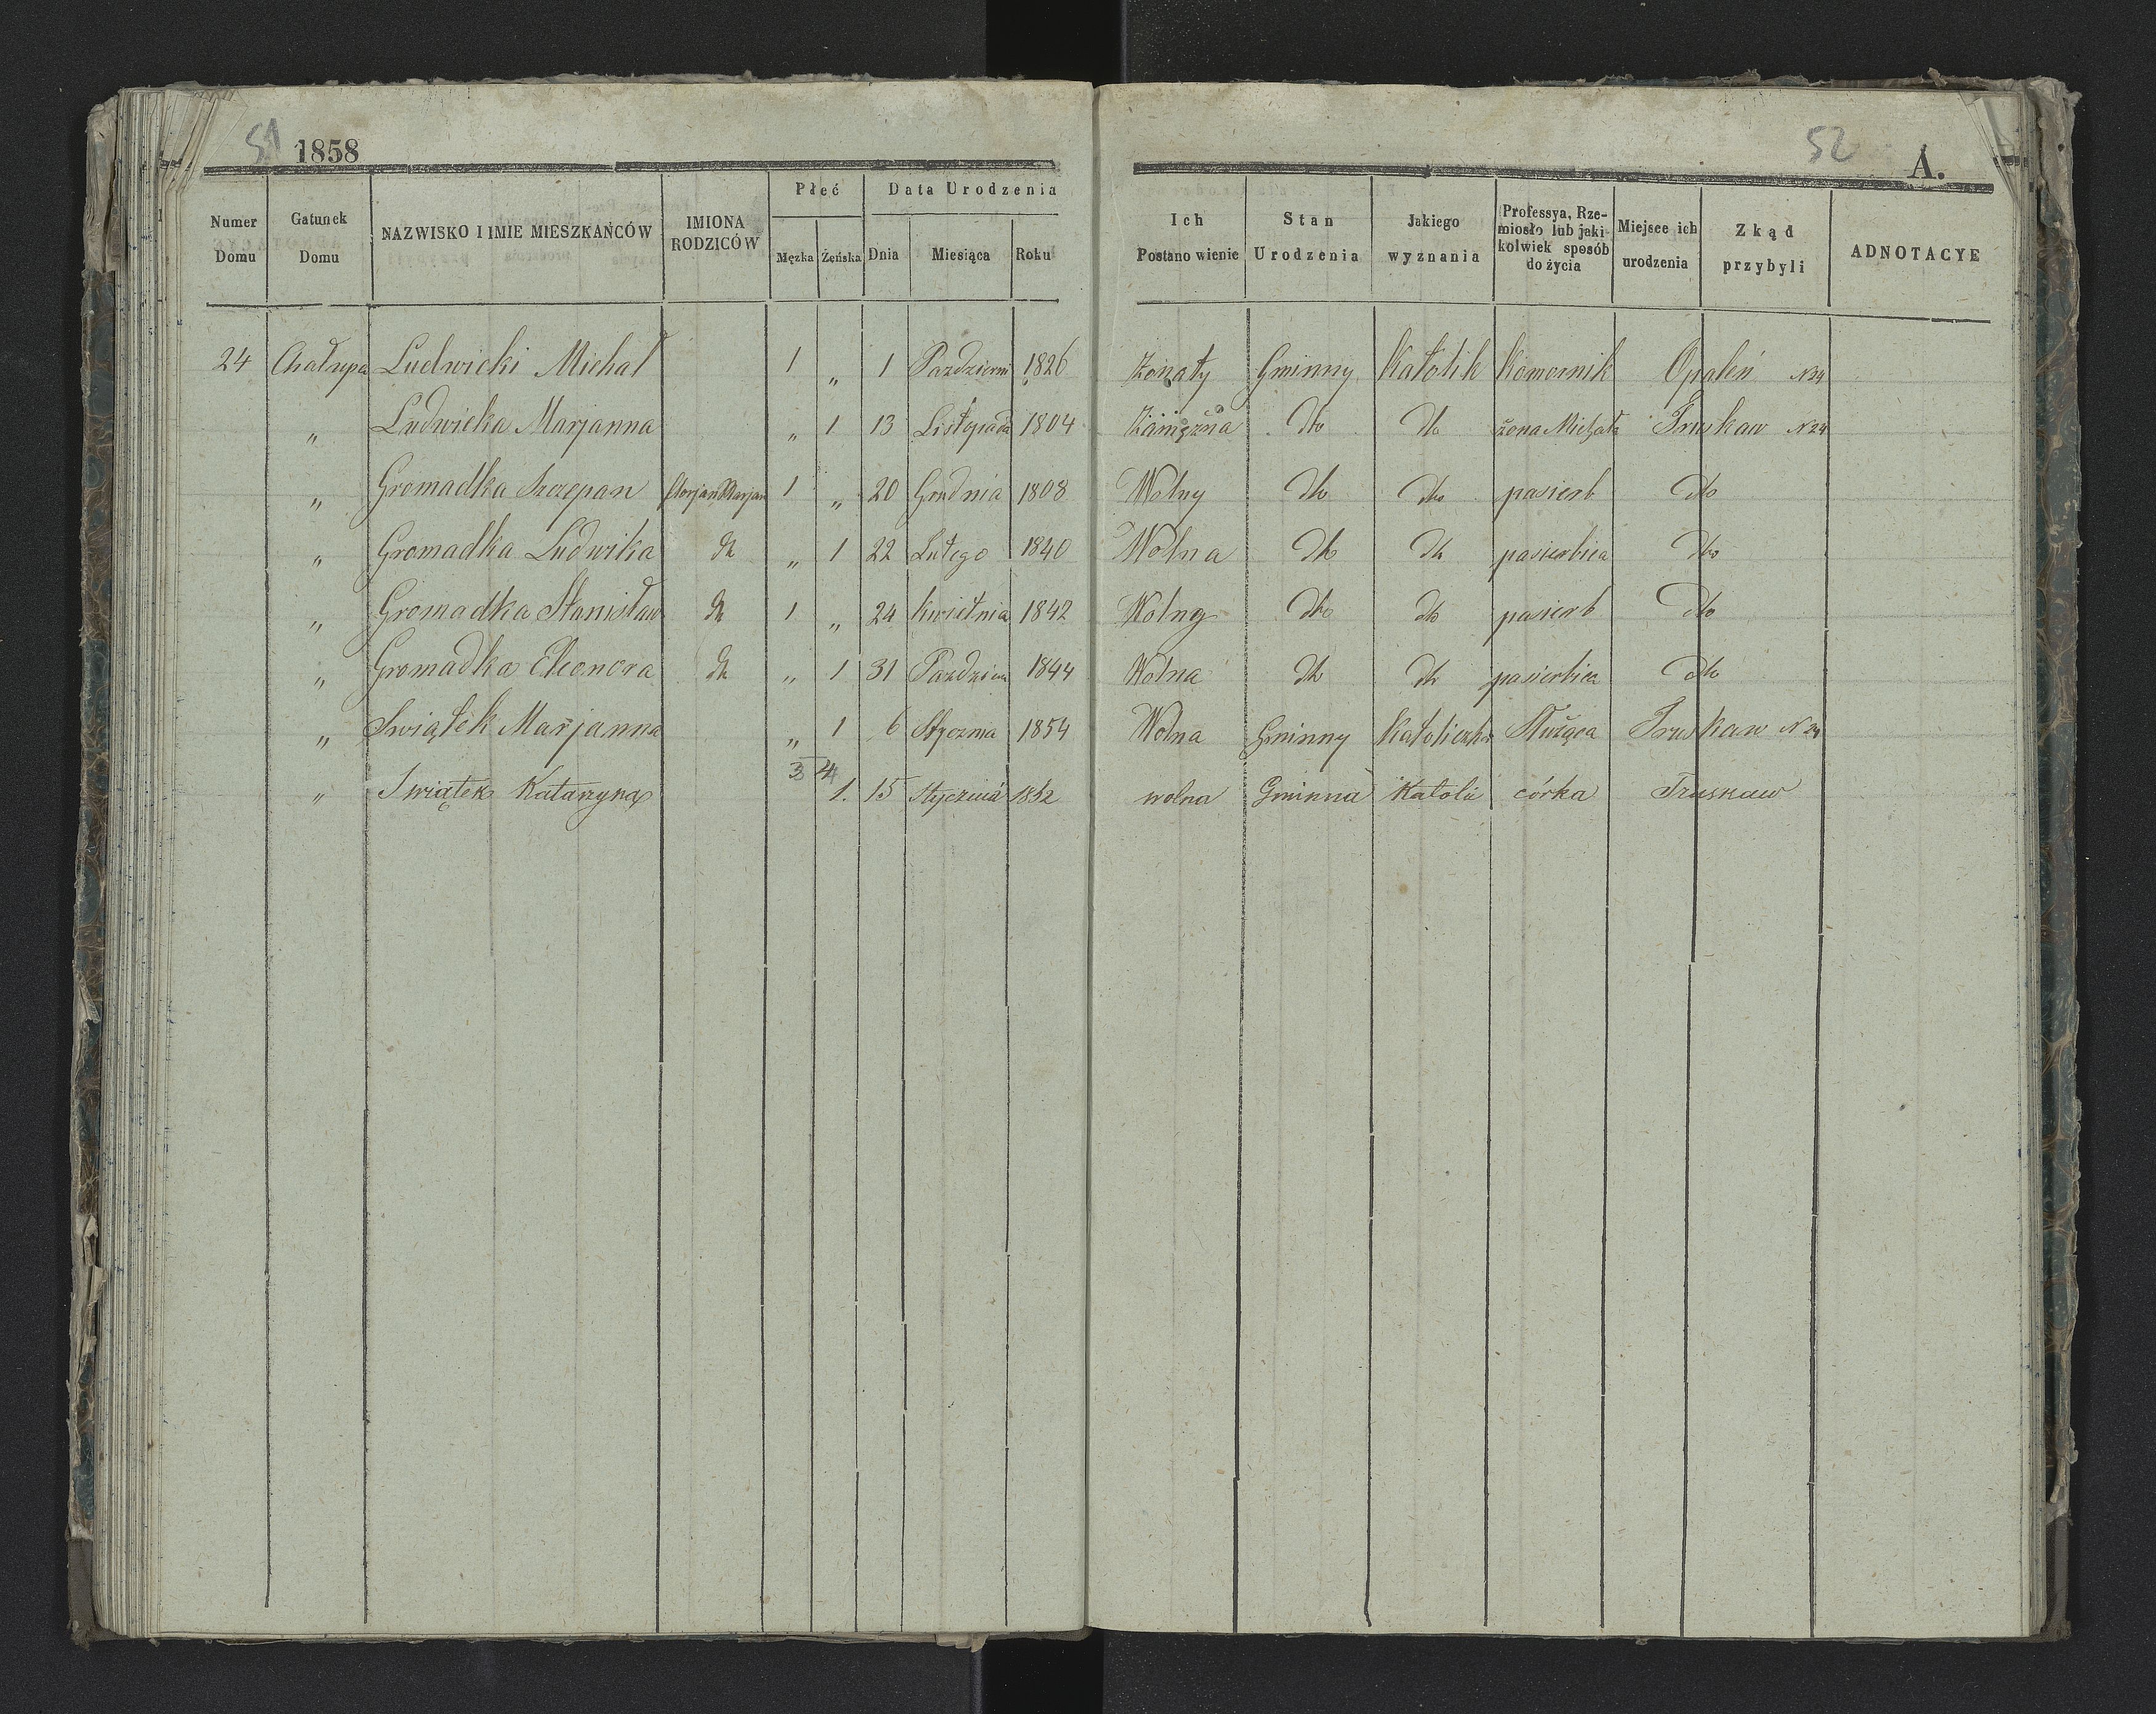 51 1858
52 A.
Numer Domu | Gatunek Domu | NAZWISKO I IMIE MIESZKAŃCÓW | IMIONA RODZICÓW | Płeć Męzka Żeńska | Data Urodzenia Dnia Miesiąca Roku | Ich Postanowienie | Stan Urodzenia | Jakiego wyznania | Professya, Rzemiosło lub jaki kolwiek sposób do życia | Miejsce ich urodzenia | Zkąd przybyli | ADNOTACYE
24 Chałupa Ludwicki Michał 1 „ 1 Pazdzierni 1826 Żonaty Gminny Katolik Komornik Opaleń N24
„ Ludwicka Marjanna „ 1 13 Listopada 1804 Zamężna dto dto żona Michała Truskaw N24
„ Gromadka Szczepan Florjan Marjan 1 „ 20 Grudnia 1808 Wolny dto dto pasierb dto
„ Gromadka Ludwika dt „ 1 22 Lutego 1840 Wolna dto dt pasierbica dto
„ Gromadka Stanisław dt 1 „ 24 Kwietnia 1842 Wolny dto dto pasierb dto
„ Gromadka Eleonora dt „ 1 31 Pazdzier 1844 Wolna dt dt pasierbica dto
„ Swiątek Marjanna „ 1 6 Stycznia 1854 Wolna Gminny Katoliczka Służąca Truskaw N24
3 4
„ Swiątek Katarzyna 1. 15 Stycznia wolna Gminna Katoli córka Truskaw